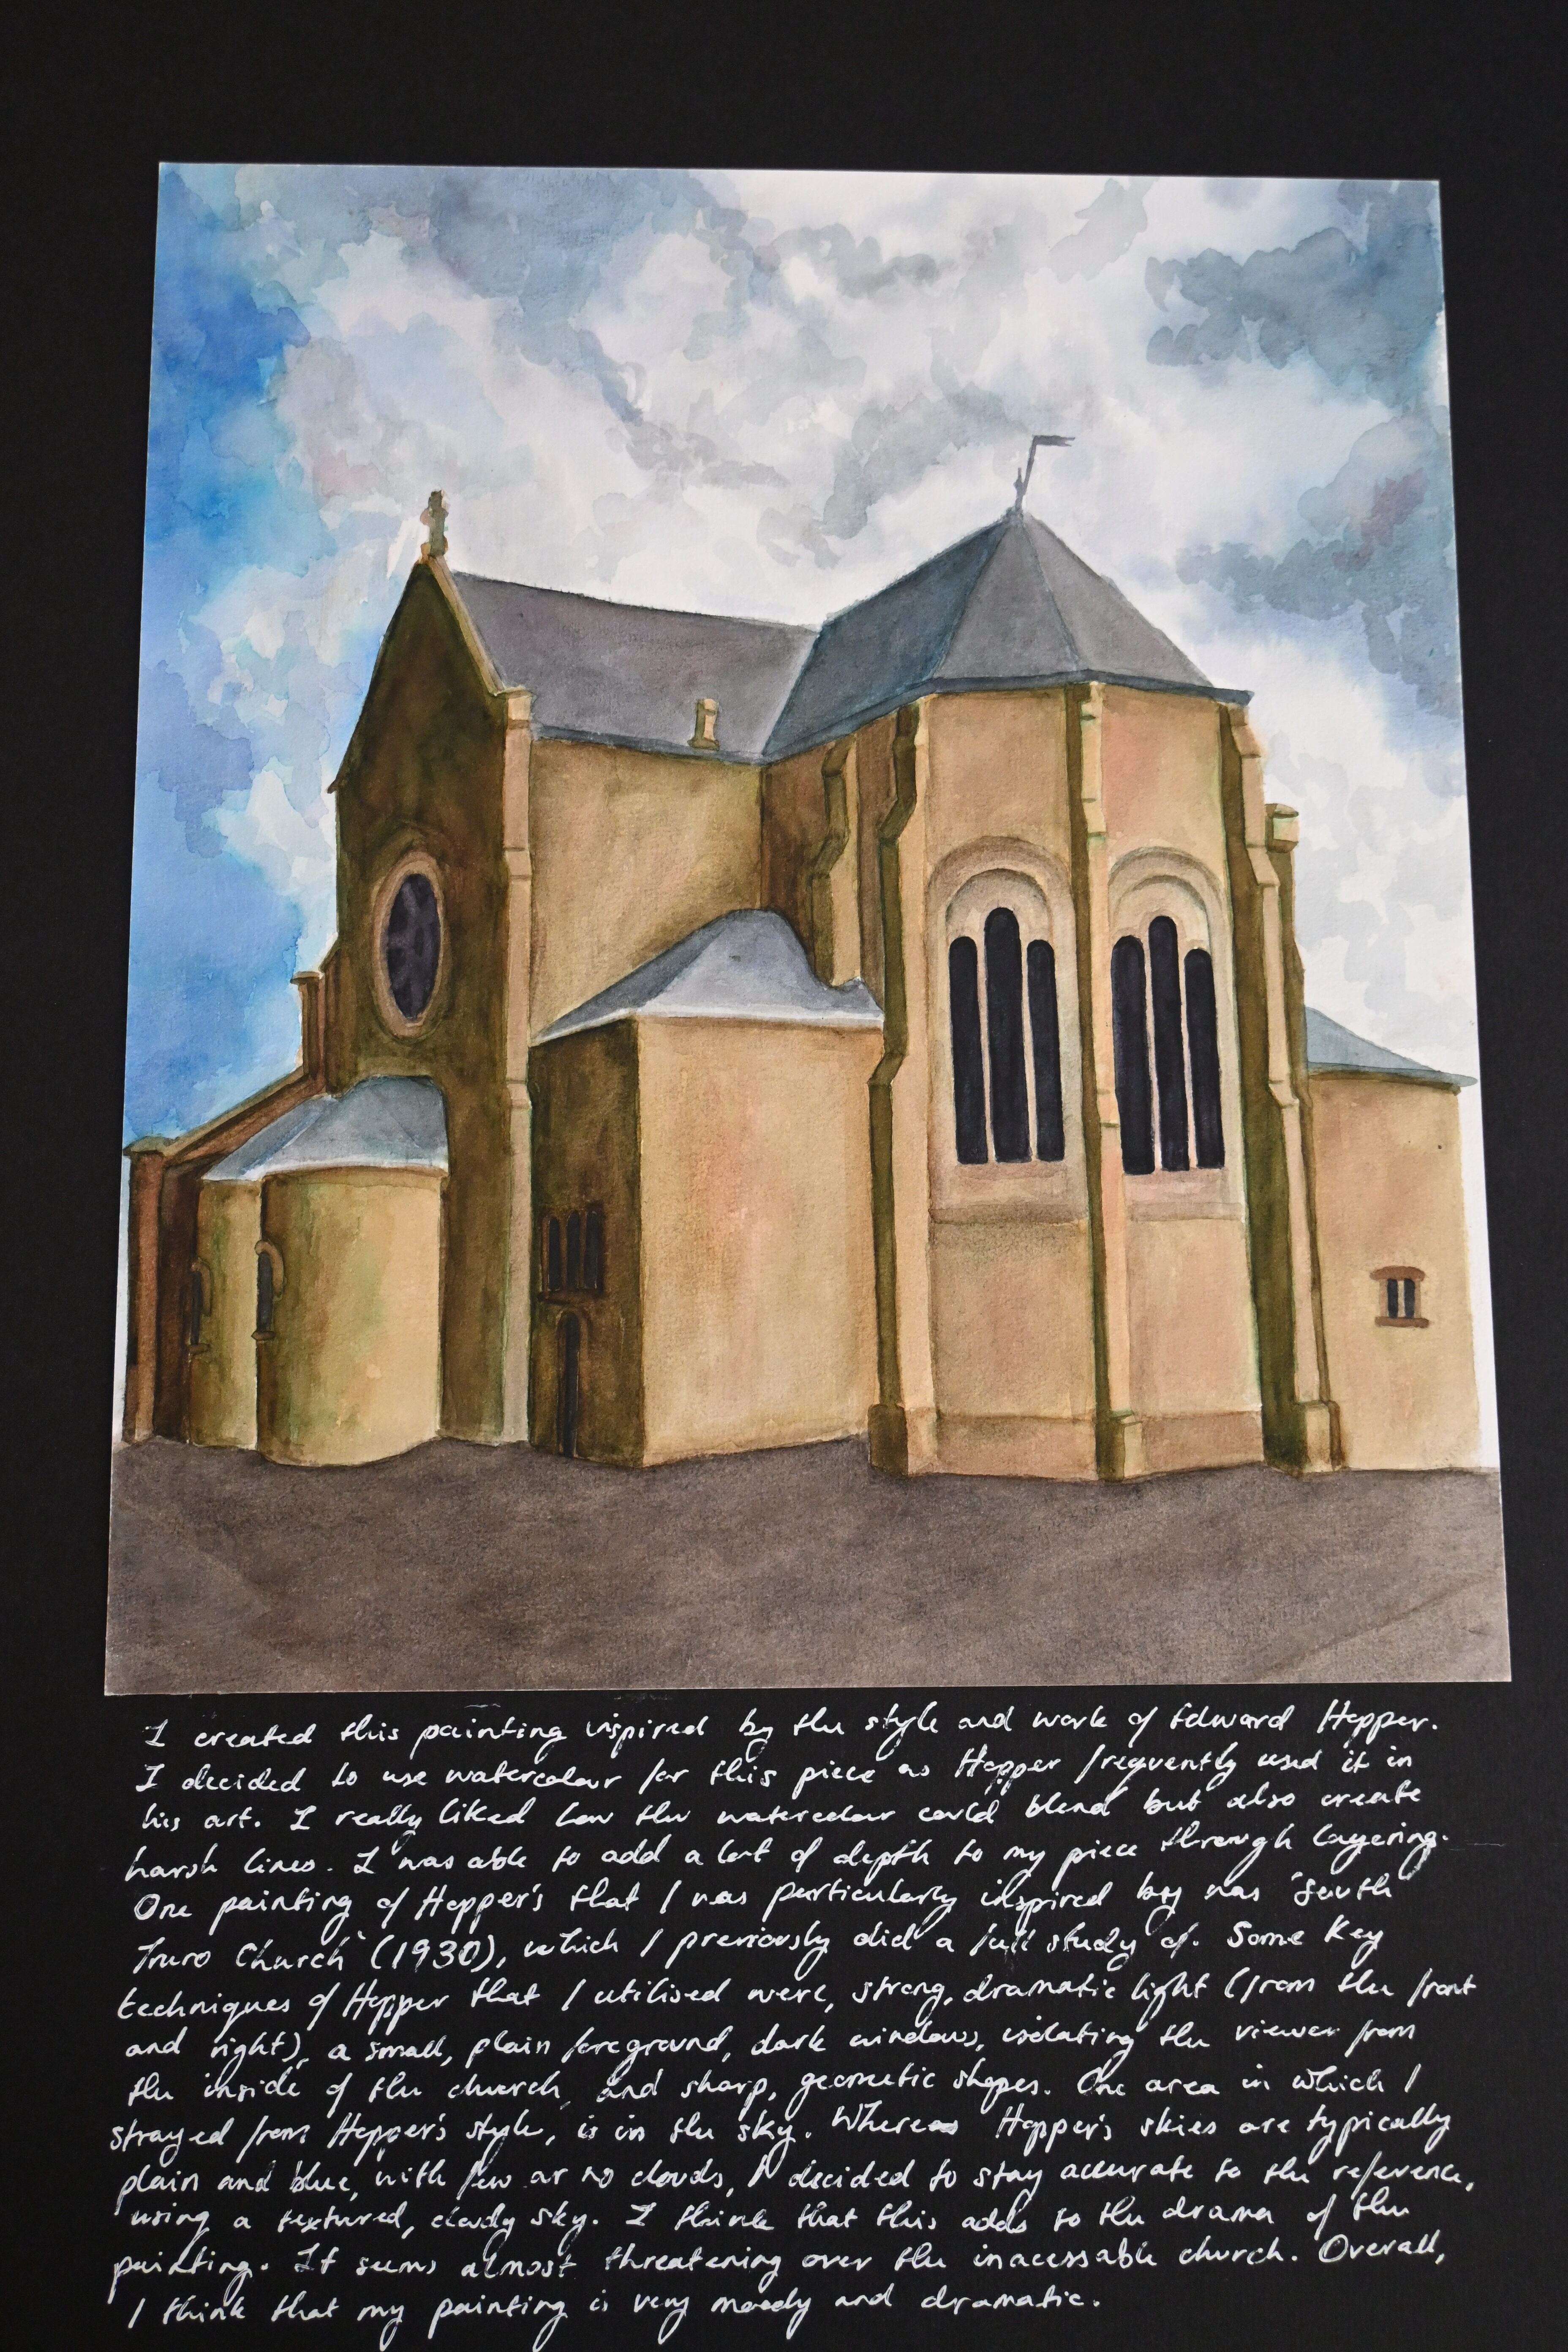 I created this painting inspired by the style and work of Edward Hopper.
I decided to use watercolour for this piece as Hopper frequently used it in
his art. I really liked how the watercolour could blend but also create
harsh lines. I was able to add a lot of depth to my piece through layering.
One painting of Hopper's that I was particularly inspired by was 'South
Truro Church' (1930), which I previously did a full study of. Some key
techniques of Hopper that I utilised were, strong, dramatic light (from the front
and right), a small, plain foreground, dark windows, isolating the viewer from
the inside of the church, and sharp, geometic shapes. One area in which I
strayed from Hopper's style, is in the sky. Whereas Hopper's skies are typically
plain and blue, with few or no clouds, I decided to stay accurate to the reference,
using a textured, cloudy sky. I think that this adds to the drama of the
painting. It seems almost threatening over the inacessable church. Overall,
I think that my painting is very moody and dramatic.